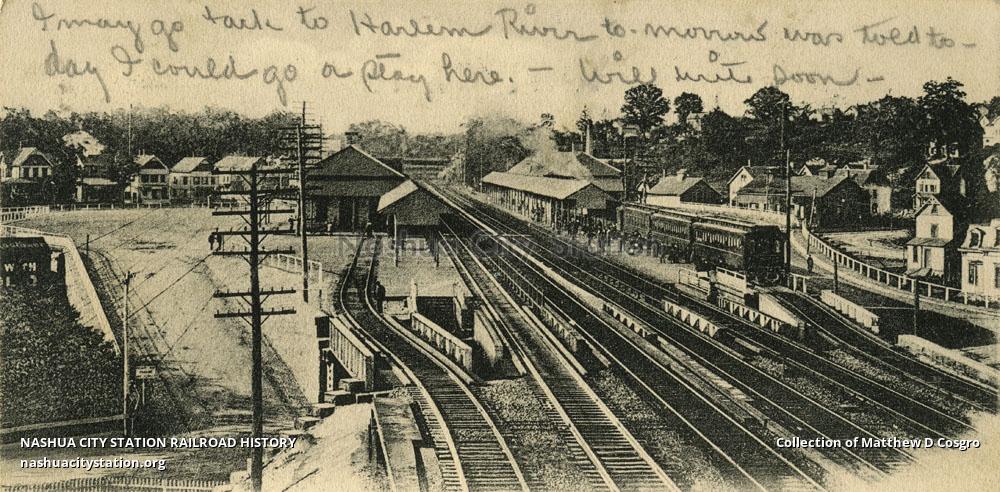 I may go back to Harlem River to-morrow was told to-
day I could go or stay here. – Will write soon –
Nashua City Station
NASHUA CITY STATION RAILROAD HISTORY
nashuacitystation.org
Collection of Matthew D Cosgro